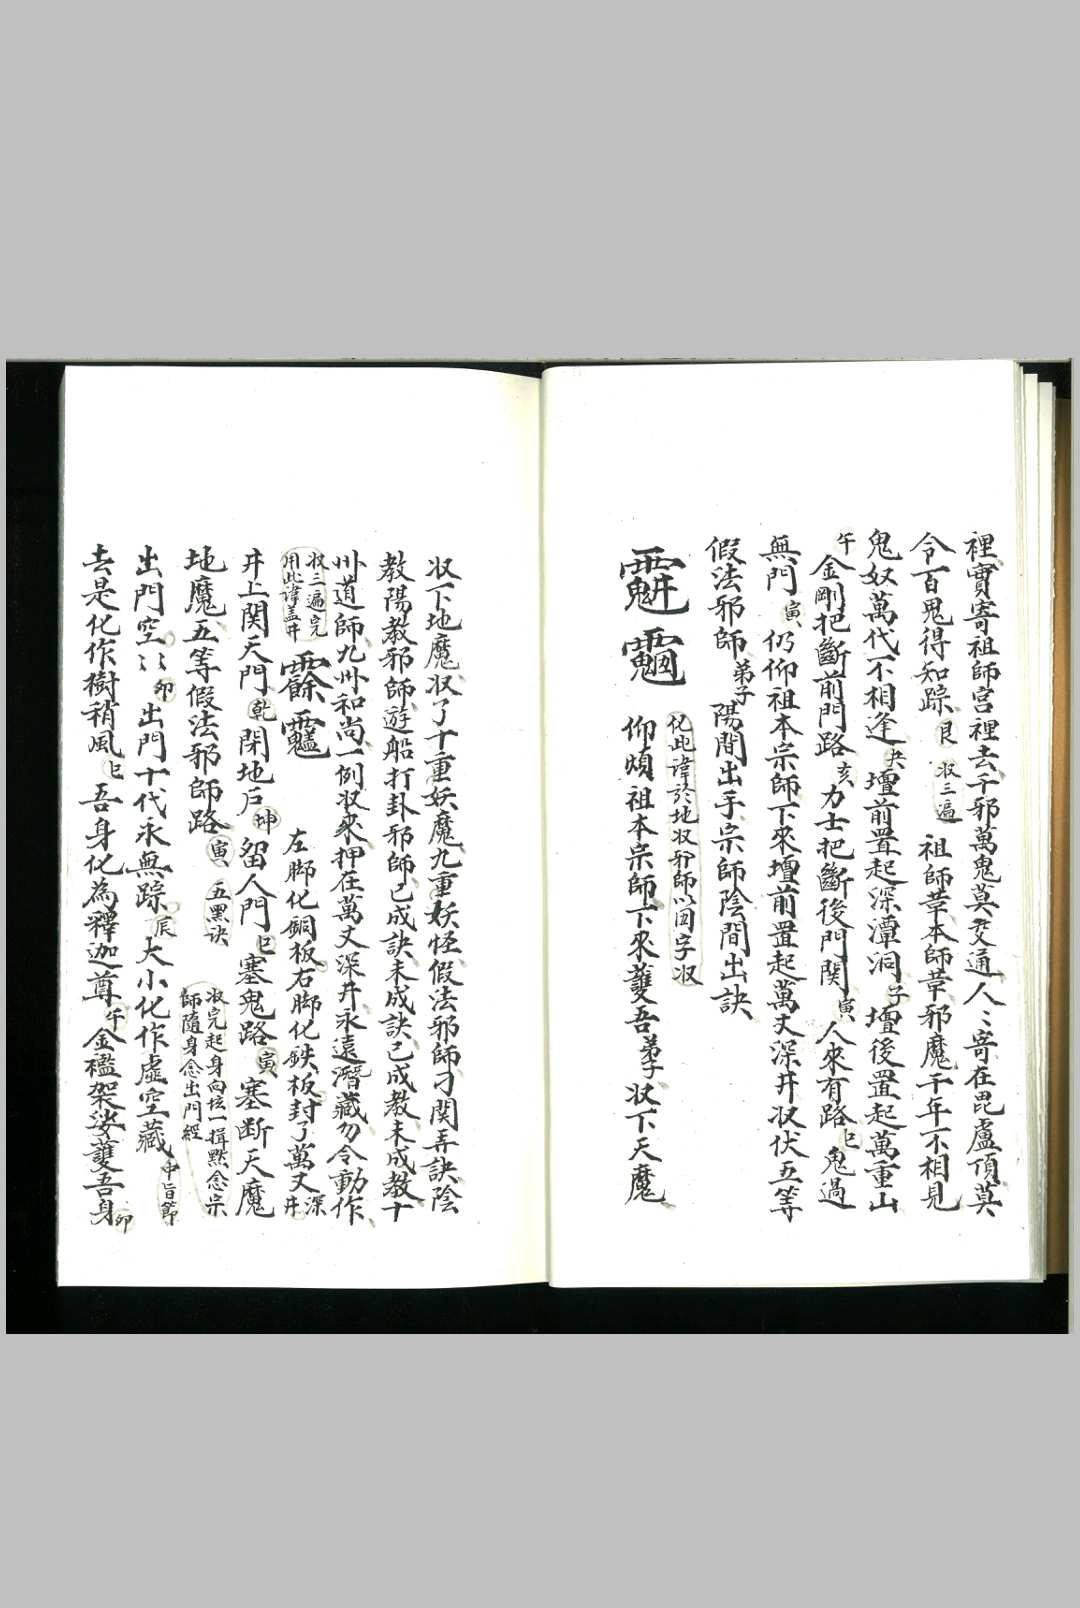 裡實寄祖師宮裡去千邪萬鬼莫交通人〻寄在毘盧頂莫
令百鬼得知踪 艮 収三遍 祖師葷本師葷邪魔千年不相見
鬼奴萬代不相逢 央 壇前置起深潭洞 子 壇後置起萬重山
午 金剛把斷前門路 亥 力士把斷後門関 寅 人來有路 巳 鬼過
無門 寅 仍仰祖本宗師下來壇前置起萬丈深井収伏五等
假法邪師 弟子 陽間出手宗師陰間出訣
化此諱於地収邪師以囙字収
仰煩祖本宗師下來䕶吾弟子収下天魔
収下地魔収了十重妖魔九重妖怪假法邪師刁関弄訣陰
教陽教邪師遊船打卦邪師已成訣未成訣已成教未成教十
卅道師九卅和尚一例収來押在萬丈深井永遠潛藏勿令動作
収三遍完
用此諱盖井
左脚化銅板右脚化鉄板封了萬丈深井
井上関天門 乾 閉地戶 坤 留人門 巳 塞鬼路 寅 塞断天魔
地魔五等假法邪師路 寅 五黑訣
收完起身向坛一揖黙念宗
師隨身念出門經
出門空〻 卯 出門十代永無踪 辰 大小化作虛空藏 中旨節
去是化作樹稍風 巳 吾身化為釋迦尊 午 金襤架娑䕶吾身 卯